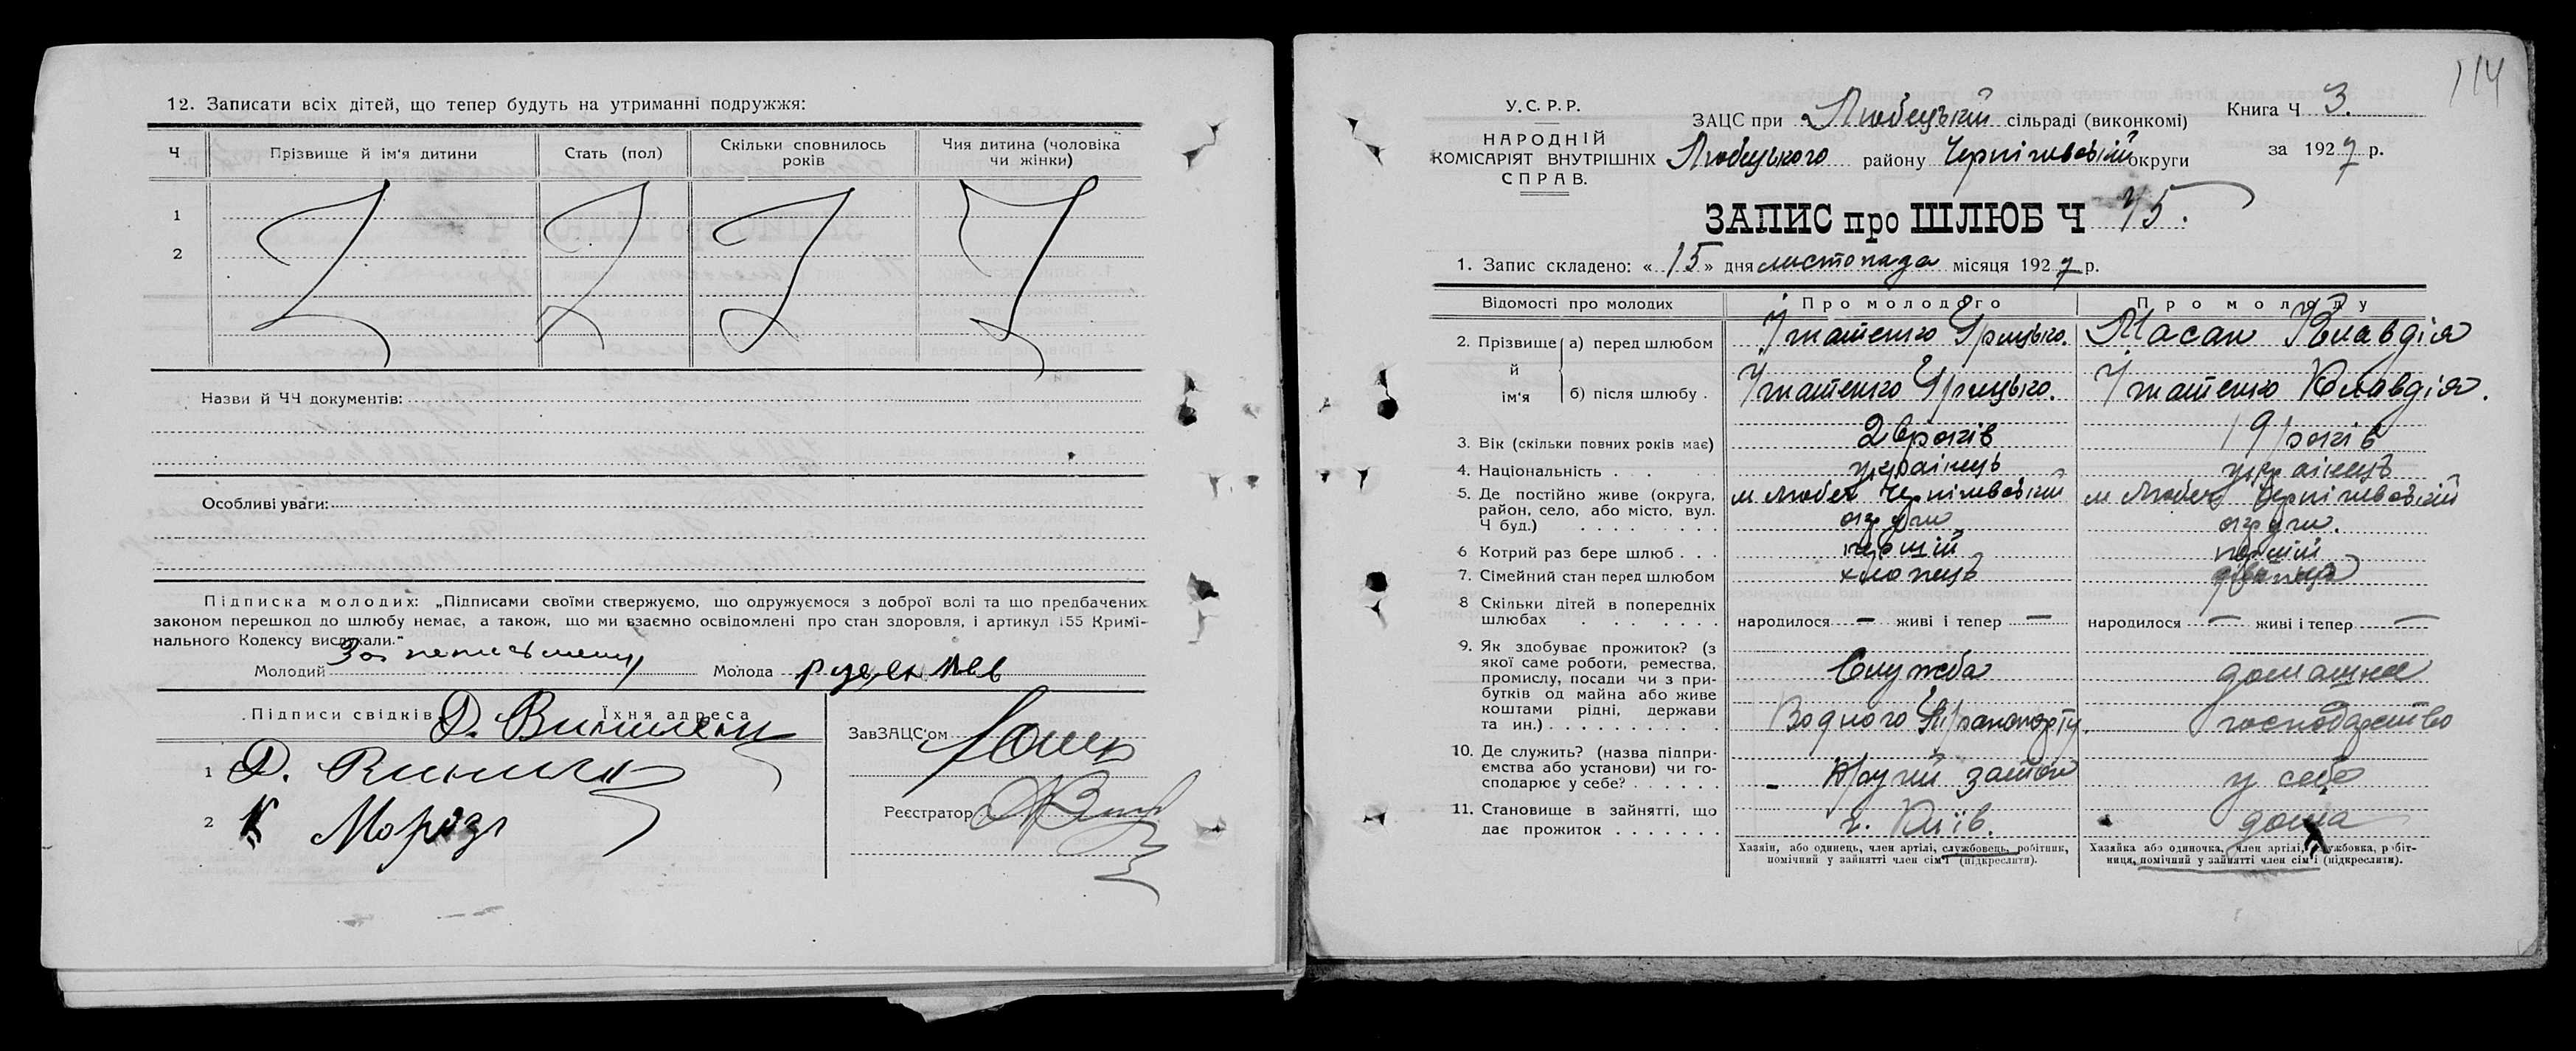 12. Записати всіх дітей, що тепер будуть на утриманні подружжя:
Ч
Прізвище й ім'я дитини
Стать (пол)
Скільки сповнилось років
Чия дитина (чоловіка чи жінки)
1
2
Назви й ЧЧ документів:
Особливі уваги:
Підписка молодих: „Підписами своїми стверджуємо, що одружуємося з доброї волі та що предбачених
законом перешкод до шлюбу немає, а також, що ми взаємно освідомлені про стан здоровля, і артикул 155 Кримі-
нального Кодексу вислухали."
Молодий За неписьмену Молода
Підписи свідків Їхня адреса
1 Д.
2 К Мороз
ЗавЗАЦС'ом
Реєстратор
114
У.С.Р.Р.
НАРОДНІЙ
КОМІСАРІЯТ ВНУТРІШНІХ
СПРАВ.
ЗАЦС при Любецькій сільраді (виконкомі)
Любецького району Чернігівській округи
Книга Ч 3.
за 1927 р.
ЗАПИС про ШЛЮБ Ч 75.
1. Запис складено: « 15 » дня листопада місяця 1927 р.
Відомості про молодих
Про молодого
Про молоду
2. Прізвище й ім'я
а) перед шлюбом
Ігнатенко Грицько.
Масан Клавдія
б) після шлюбу .
Ігнатенко Грицько.
Ігнатенко Клавдія.
3. Вік (скільки повних років має)
років
19 років
4. Національність . . . .
українець
українець
5. Де постійно живе (округа,
район, село, або місто, вул.
Ч буд.) . . . . . . .
м Любеч Чернігівській
округи
м Любеч Чернігівській
округи.
6 Котрий раз бере шлюб . . .
перший
перший
7. Сімейний стан перед шлюбом
хлопець
дівиця
8 Скільки дітей в попередніх
шлюбах . . . . . .
народилося — живі і тепер —
народилося — живі і тепер —
9. Як здобуває прожиток? (з
якої саме роботи, ремества,
промислу, посади чи з при-
бутків од майна або живе
коштами рідні, держави
та ин.) . . . . . . . . .
Служба
Водного Транспорту.
домашнє
господарство
10. Де служить? (назва підпри-
ємства або установи) чи го-
сподарює у себе? . . . . . .
затон
у себе
11. Становище в зайнятті, що
дає прожиток . . . . . . .
г. Київ.
дома
Хазяїн, або одинець, член артілі, службовець, робітник,
помічний у зайнятті член сім'ї (підкреслити).
Хазяйка або одиночка, член артілі, службовка, робіт-
ниця, помічний у зайнятті член сім'ї (підкреслити).